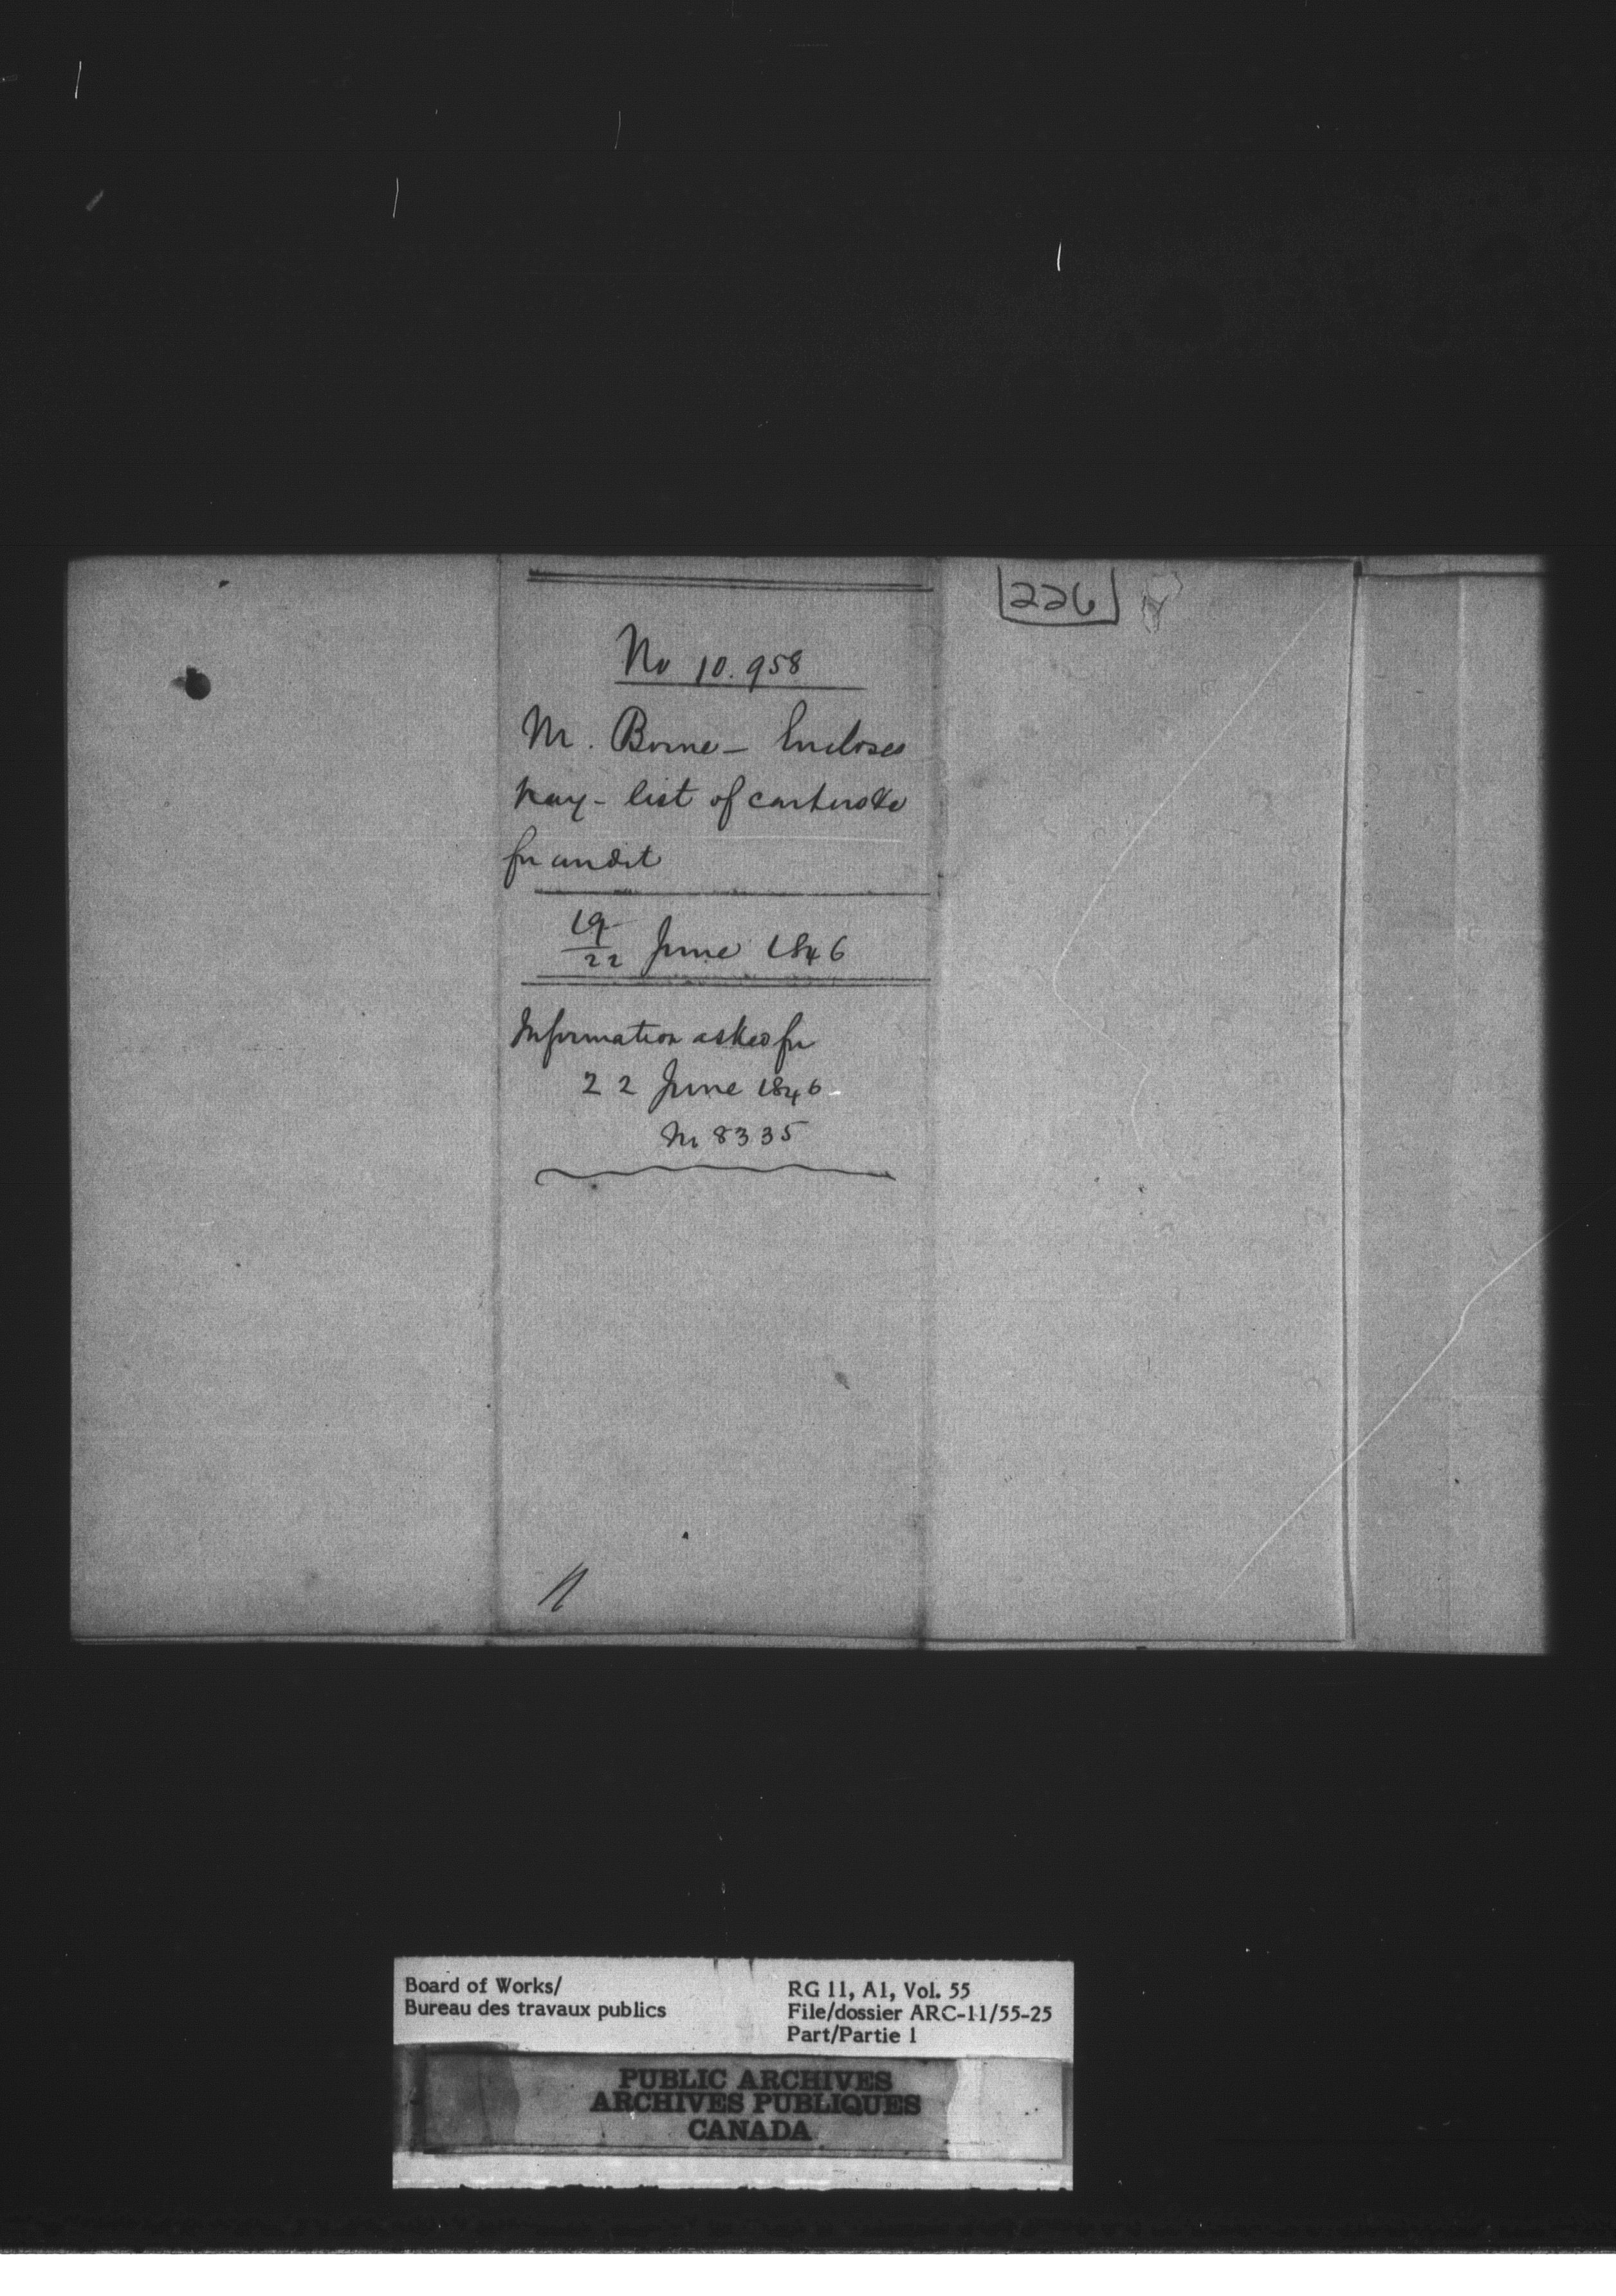 226
No 10.958
Mr. Borne - Encloses
pay-list of
for audit
19/22 June 1846
Information asked for
22 June 1846
No 8335
Board of Works/
Bureau des travaux publics
RG 11, A1, Vol. 55
File/dossier ARC-11/55-25
Part/Partie 1
PUBLIC ARCHIVES
ARCHIVES PUBLIQUES
CANADA